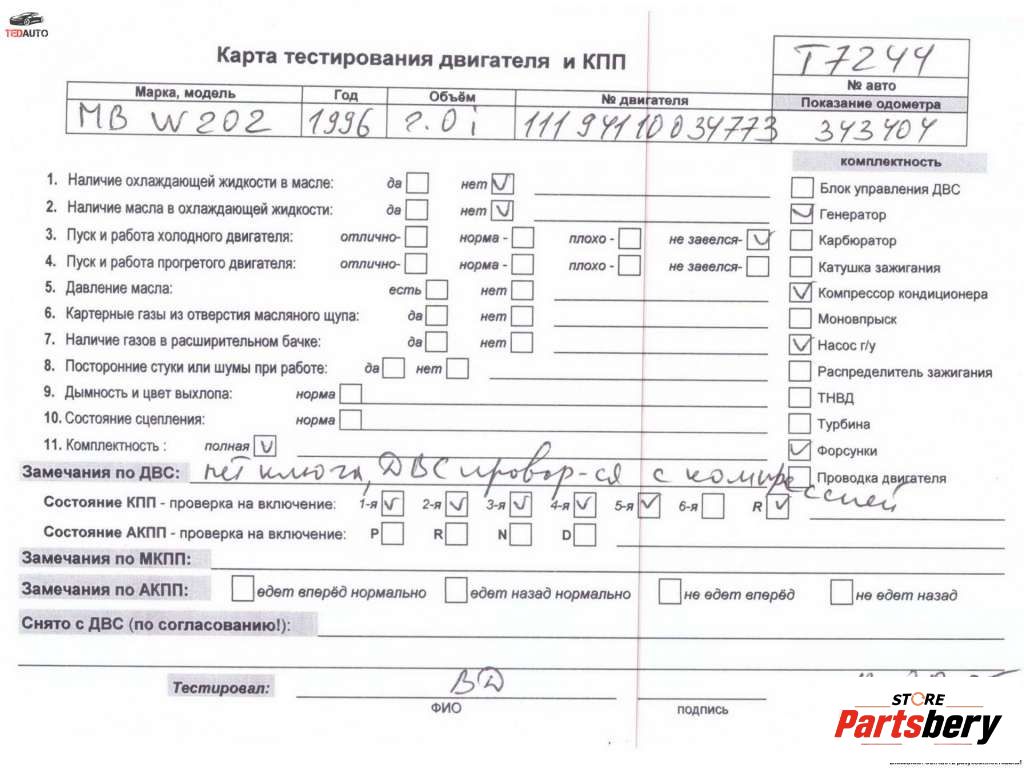 TEDAUTO
Карта тестирования двигателя и КПП
T7244
№ авто
Марка, модель Год Объём № двигателя Показание одометра
MB W202 1996 2.0i 111 941 10 034773 343404
комплектность
1. Наличие охлаждающей жидкости в масле: да нет
Блок управления ДВС
2. Наличие масла в охлаждающей жидкости: да нет
Генератор
3. Пуск и работа холодного двигателя: отлично- норма - плохо - не завелся-
Карбюратор
4. Пуск и работа прогретого двигателя: отлично- норма - плохо - не завелся-
Катушка зажигания
5. Давление масла: есть нет
Компрессор кондиционера
6. Картерные газы из отверстия масляного щупа: да нет
Моновпрыск
7. Наличие газов в расширительном бачке: да нет
Насос г/у
8. Посторонние стуки или шумы при работе: да нет
Распределитель зажигания
9. Дымность и цвет выхлопа: норма
ТНВД
10. Состояние сцепления: норма
Турбина
11. Комплектность : полная
Форсунки
Замечания по ДВС: нет ключа, ДВС провор-ся с компрессией
Проводка двигателя
Состояние КПП - проверка на включение: 1-я 2-я 3-я 4-я 5-я 6-я R
Состояние АКПП - проверка на включение: P R N D
Замечания по МКПП:
Замечания по АКПП: едет вперёд нормально едет назад нормально не едет вперёд не едет назад
Снято с ДВС (по согласованию!):
Тестировал: ВД
ФИО подпись
STORE
Partsbery